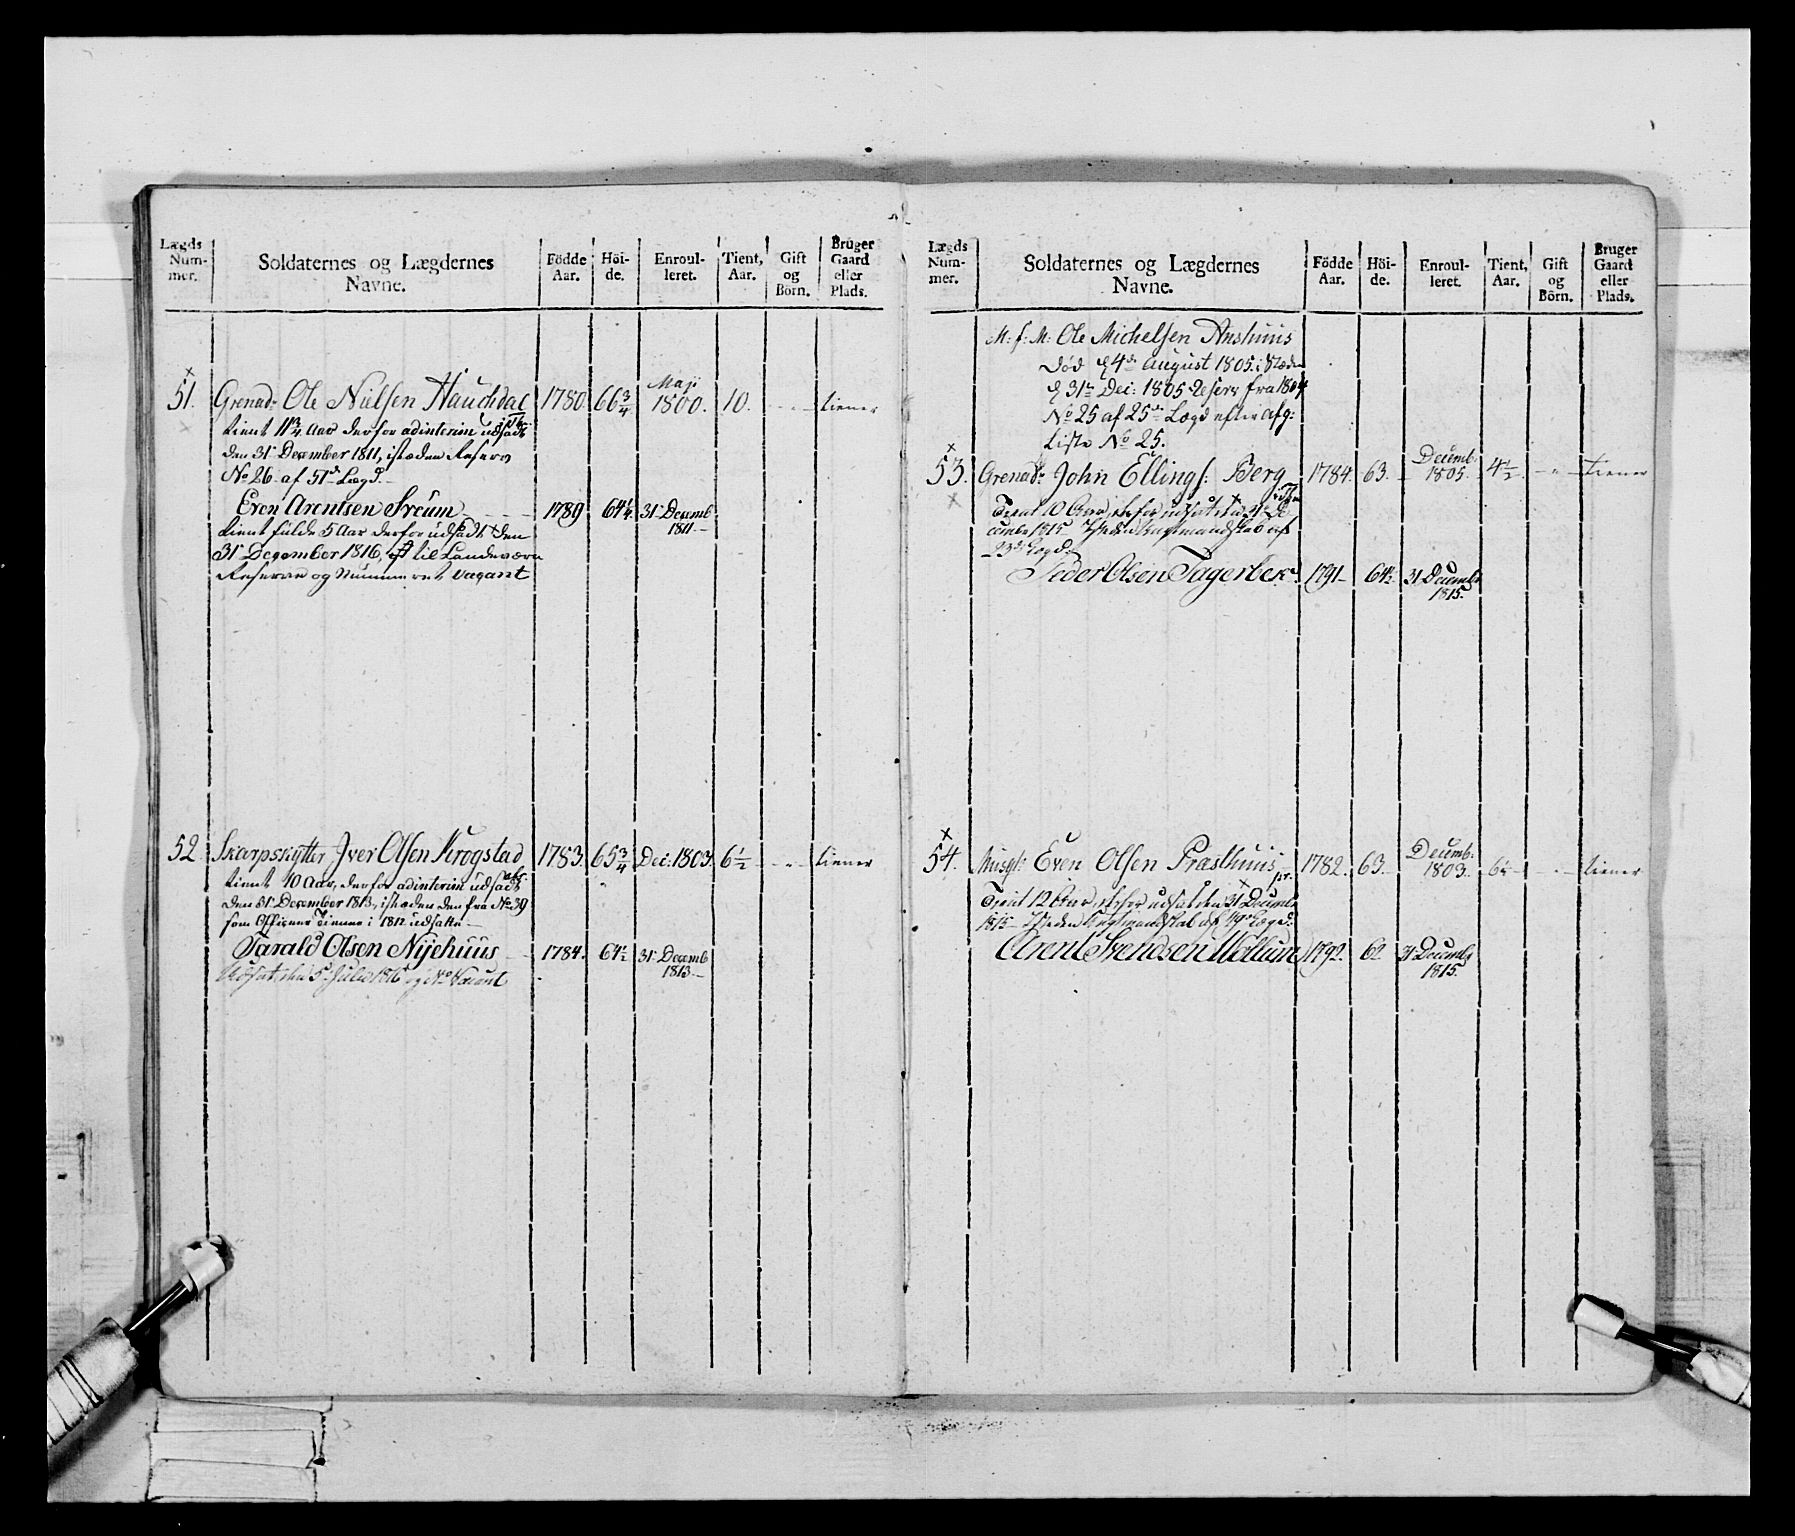 Lægds Num-mer. Soldaternes og Lægdernes Navne. Födde Aar. Höi-de. Enroul-leret. Tient, Aar. Gift og Börn. Bruger Gaard eller Plads.
51. Grenad. Ole Nielsen Hauchdal 1780. 66 3/4 Maji 1800. 10. - " - tiener
tient 11 3/4 Aar derfor adinterim udsadt
den 31 December 1811, isteden Reserv
No 26 af 51de Lægd.
Even Arentsen Sveum 1789 64 1/4 31 Decemb 1811
tient fulde 5 Aar derfor udsadt den
31 December 1816, til Landeværn
Reserven og Nummeret vacant
52. Skarpskytter Iver Olsen Krogstad 1783. 65 3/4 Dec: 1803. 6 1/2 - " - tiener
tient 10 Aar, derfor adinterim udsadt
den 31 December 1813, isteden den fra No 39
som Officeer Tienner i 1812 udsatte
Tarald Olsen Nyehuus 1784. 64 1/2 31 Decemb 1813
Udsat den 5 Julii 1816 og No Vacant
Lægds Num-mer. Soldaternes og Lægdernes Navne. Födde Aar. Höi-de. Enroul-leret. Tient, Aar. Gift og Börn. Bruger Gaard eller Plads.
M: f: M: Ole Michelsen
død 4de August 1805. i Stæden
31te Dec: 1805 Reserv fra 1804
No 25 af 25de Lægd efter Afg:
Liste No 25.
53. Grenad. John Ellings: Berg 1784. 63. Decemb: 1805. 4 1/2 - " - tiener
Tient 10 Aar, derfor udsat den 31 De-
cember 1815 Isteden af
23de Lægd.
Peder Olsen Fagerbek 1791 64 1/2 31 Decembr 1815.
54. Musq: Even Olsen Præsthuus 1782. 63. Decemb: 1803. 6 1/2 - " - tiener
Tient 12 Aar, derfor udsat den 31 Decembr
1815 Isteden af 19de Lægd:
Arent Svendsen Wollum 1792. 62 31 Decembr 1815.